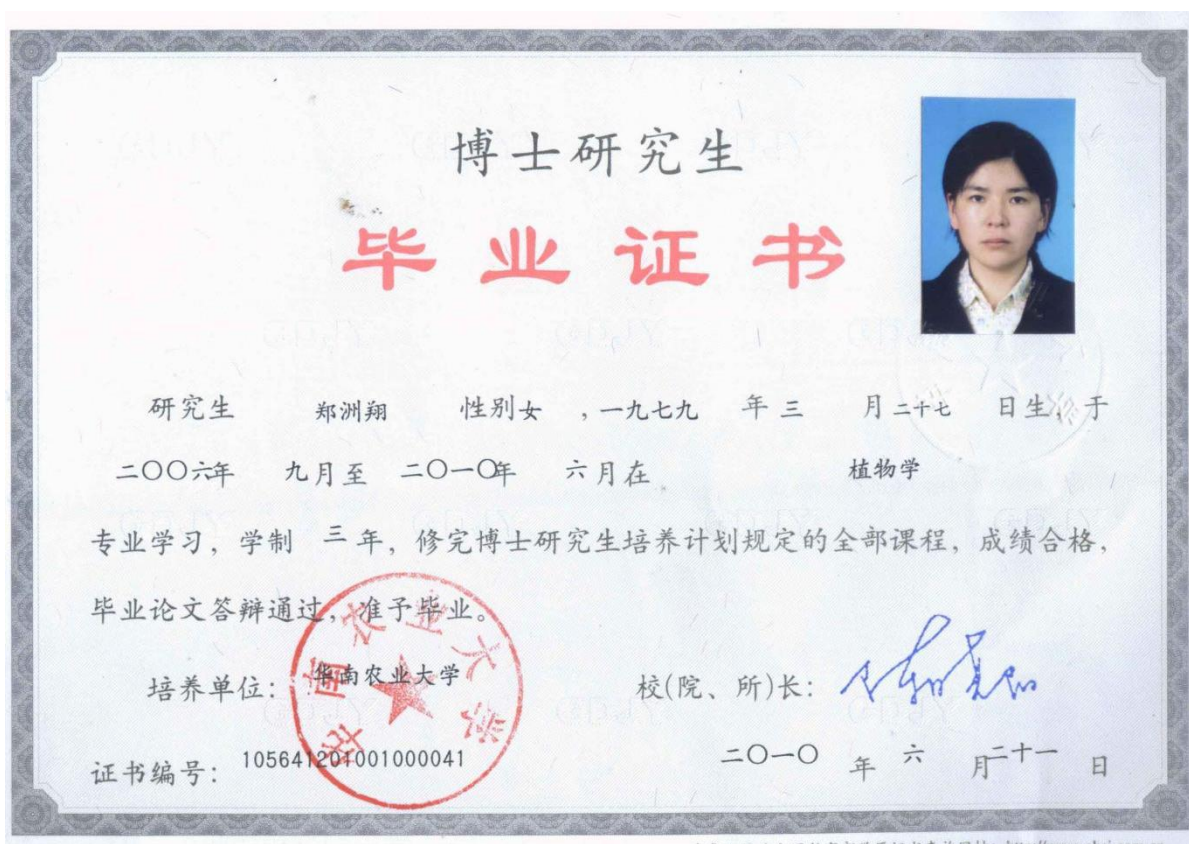 博士研究生
毕业证书
研究生 郑洲翔 性别女，一九七九 年 三 月 二十七 日生，于
二〇〇六年 九月至 二〇一〇年 六月在 植物学
专业学习，学制 三 年，修完博士研究生培养计划规定的全部课程，成绩合格，
毕业论文答辩通过，准予毕业。
培养单位：华南农业大学 校(院、所)长：
华南农业大学
证书编号：105641201001000041 二〇一〇 年 六 月二十一 日